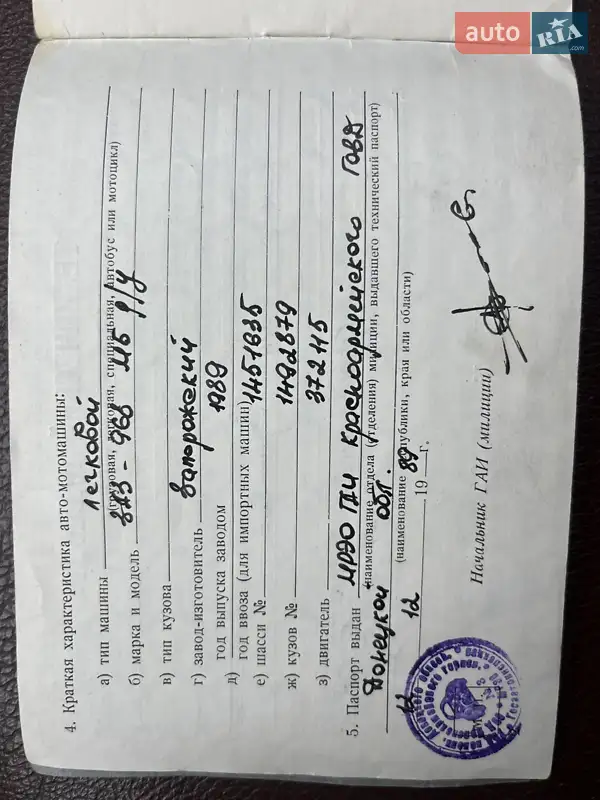 auto RIA.com
4. Краткая характеристика авто-мотомашины:
а) тип машины Легковой
(грузовая, легковая, специальная, автобус или мотоцикл)
б) марка и модель ЗАЗ-968 МБ р/у
в) тип кузова
г) завод-изготовитель Запорожский
год выпуска заводом 1989
д) год ввоза (для импортных машин)
е) шасси № 1451635
ж) кузов № 1492879
з) двигатель 372115
5. Паспорт выдан МРЭО ГАИ Красноармейского ГОВД
(наименование отдела (отделения) милиции, выдавшего технический паспорт)
Донецкой обл.
(наименование республики, края или области)
12 89
19 г.
Начальник ГАИ (милиции)